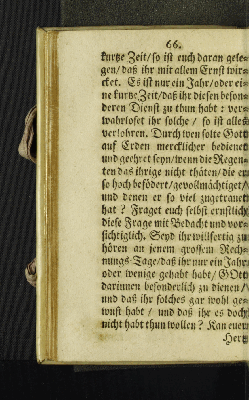 66.
kurtze Zeit/ so ist euch daran gele-
gen/ daß ihr mit allem Ernst wir-
cket. Es ist nur ein Jahr/ oder ei-
ne kurtze Zeit/ daß ihr diesen beson-
deren Dienst zu thun habt: ver-
wahrloset ihr solche / so ist alles
verlohren. Durch wen solte Gott
auf Erden mercklicher bedienet
und geehret seyn/ wenn die Regen-
ten das ihrige nicht thäten/ die er
so hoch befödert/ gevollmächtiget/
und denen er so viel zugetrauet
hat? Fraget euch selbst ernstlich
diese Frage mit Bedacht und vor-
sichtiglich. Seyd ihr willfertig zu
hören an jenem grossen Rech-
nungs-Tage/ daß ihr nur ein Jahr
oder wenige gehabt habt/ GOtt
darinnen besonderlich zu dienen/
und daß ihr solches gar wohl ge-
wust habt / und daß ihr es doch
nicht habt thun wollen? Kan euer
Hertz